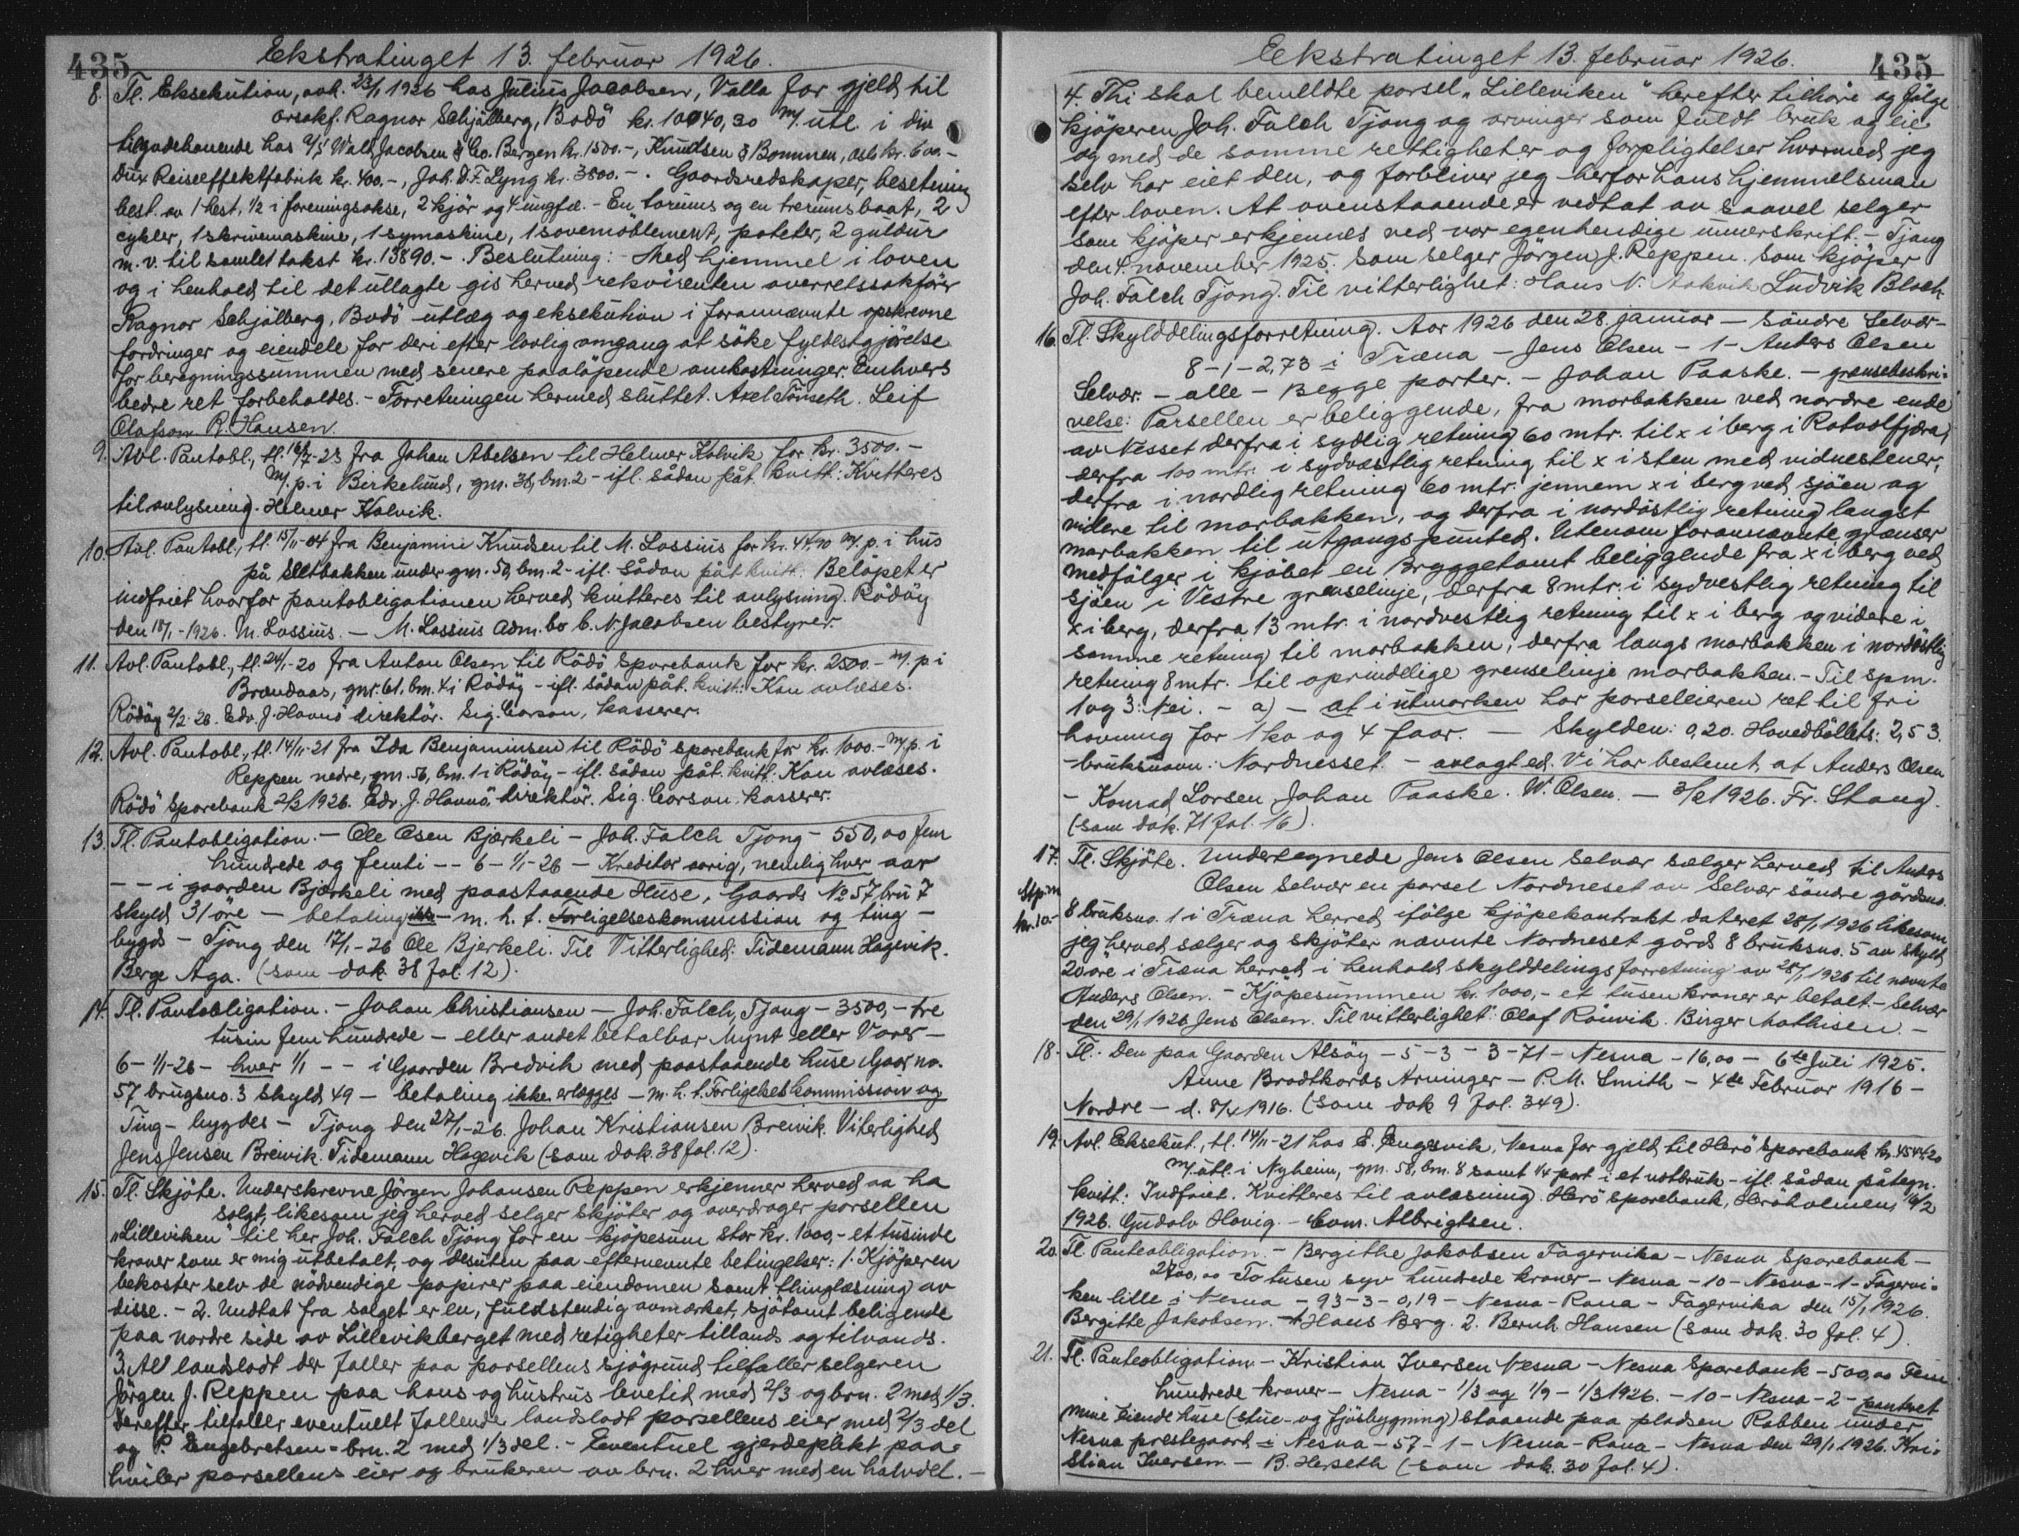 435
Ekstratinget 13. februar 1926.
8. Tl. Eksekution, avh. 23/1 1926 hos Julius Jacobsen, Valla for gjeld til
orsakf. Ragnar Schjølberg, Bodö kr. 10040,30 m/ utl. i div
tilgodehavende hos Wald. Jacobsen & Co. Bergen kr. 1500.-, Knudsen & Bommen, Oslo kr. 600.-
Dux Reiseeffektfabrik kr. 400.-, Joh. D.F. Lyng kr. 3800.-. Gaardsredskaper, besetning
best. av 1 hest, 1/2 i foreningsokse, 2 kjör og 4 ungfæ. - En torums og en trerumsbaat, 2
cykler, 1 skrivemaskine, 1 symaskine, 1 sovemöblement, poteter, 2 guldur
m.v. til samlet takst kr. 13890.-. Beslutning: - Med hjemmel i loven
og i henhold til det utlagte gis herved rekvirenten overretssakförer
Ragnar Schjölberg, Bodö utlæg og eksekution i forannævnte opskrevne
fordringer og eiendele for deri efter lovlig omgang at söke fyldestgjörelse
for beregningssummen med senere paalöpende omkostninger. Enhvers
bedre ret forbeholdes. - Forretningen hermed sluttet. Axel Tömseth. Leif
Olafson R. Hansen.
9. Avl. Pantobl., tl. 16/7-23 fra Johan Abelsen til Helmer Kolvik for kr. 3500.-
m/ p. i Birkelund, gnr. 38, bnr. 2 - ifl. sådan påt. kvitt: Kvitteres
til avlysning. Helmer Kolvik.
10. Avl. Pantobl., tl. 15/11-04 fra Benjamin Knudsen til M. Lossius for kr. m/ p. i hus
på Sletbakken under gnr. 50, bnr. 2 - ifl. sådan påt kvitt: Belöpet er
indfriet hvorfor pantobligationen herved kvitteres til avlysning. Rödöy
den 18/1-1926. M. Lossius. - M. Lossius adm. bo C. N. Jacobsen bestyrer.
11. Avl. Pantobl., tl. 24/1-20 fra Anton Olsen til Rödö Sparebank for kr. 2500.- m/ p i
Brændaas, gnr. 61, bnr. 4 i Rödöy - ifl. sådan påt. kvitt: Kan avlæses.
Rödöy 2/2-26. Edv. J. Havnö direktör. Sig. Carson, kasserer.
12. Avl. Pantobl., tl. 14/11-21 fra Ida Benjaminsen til Rödö sparebank for kr. 1000.- m/ p. i
Reppen nedre, gnr. 56, bnr. 1 i Rödöy - ifl. sådan påt. kvitt: Kan avlæses.
Rödö Sparebank 2/2 1926. Edv. J. Havnö direktör. Sig. Carson. kasserer.
13. Tl. Pantobligation. - Ole Olsen Bjærkeli - Joh. Falch Tjong - 550,00 fem
hundrede og femti -- 6 - 1/1-26 - Kreditor aarig, nemlig hver aar
- - i gaarden Bjærkeli med paastaaende Huse, Gaards No 57 bru 7
Skyld 31 öre - betaling ikke - m. h. t. Forligelseskommission og ting -
bygds - Tjong den 17/1-26 Ole Bjerkeli. Til Vitterlighed: Tidemann Hagevik.
Berge Aga. (som dok. 38 fol. 12).
14. Tl. Pantobligation. - Johan Christiansen - Joh. Falch, Tjong - 3500,- tre
tusin fem hundrede - eller andet betalbar Mynt eller Varer -
6 - 1/1-26 - hver 1/1 - - i Gaarden Bredvik med paastaaende huse Gaar, no.
57 brugsno. 3 Skyld 49 - betaling ikke erlægges - m. h. t. Forligelses kommission og
Ting - bygdes - Tjong den 27/1-26. Johan Kristiansen Breivik. Viterlighed
Jens Jensen Breivik. Tidemann Hagevik (som dok. 38 fol. 12).
15. Tl. Skjöte. Underskrevne Jörgen Johansen Reppen erkjenner herved aa ha
solgt, likesom jeg herved selger skjöter og overdrager parsellen
„Lilleviken“ til her Joh. Falch Tjong for en kjöpesum stor kr. 1000,- et tusinde
kroner som er mig utbetalt, og desuten paa efternevnte betingelser: 1. Kjöperen
bekoster selv de nödvendige papirer paa eiendomen samt thinglæsning av
disse. - 2. Undtat fra salget er en, fuldstendig avmærket, sjötomt beligende
paa nordre side av Lillevikberget med retigheter tillands og tilvands.
3. Alt landslodt der faller paa parsellens sjögrund tilfaller selgeren
Jörgen J. Reppen paa hans og hustrus levetid med 2/3 og brn. 2 med 1/3.
Derefter tilfaller eventuelt fallende landslodt parsellens eier med 2/3 del
og P. Engebretsen - brn. 2 med 1/3 del. - Eventuel gjerdeplikt paa-
hviler parsellens eier og brukeren av brn. 2 hver med en halvdel. -
Ekstratinget 13. februar 1926.
435
4. Thi skal bemeldte parsel „Lilleviken“ herefter tilhöre og fölge
kjöperen Joh. Falch Tjong og arvinger som fuldt bruk og eie
og med de samme rettigheter og forpligtelser hvormed jeg
selv har eiet den, og forbliver jeg herfor hans hjemmelsman
efter loven. At ovenstaaende er vedtat av saavel selger
som kjöper erkjennes ved vor egenhendige underskrift. - Tjong
den 4. november 1925. Som selger Jörgen J. Reppen. Som kjöper
Joh. Falch Tjong. Til vitterlighet: Hans N. Aakvik Ludvik Bloch
16. Tl. Skylddelingsforretning. Aar 1926 den 28. januar - Söndre Selvær -
8 - 1 - 2,73 i Træna - Jens Olsen - 1 - Anders Olsen
Selvær. - alle - Begge parter. - Johan Paaske. - grænsebeskri-
velse: Parsellen er beliggende, fra marbakken ved nordre ende
av Nesset derfra i sydlig retning 60 mtr. til x i berg i Rotvolfjæra,
derfra 100 mtr. i sydvæstlig retning til x i sten med vidnestener,
derfra i nordlig retning 60 mtr. jennem x i berg ved sjöen og
videre til marbakken, og derfra i nordöstlig retning langst
marbakken til utgangspunted. Utenom forannævnte grænser
medfölger i kjöbet en Bryggetomt beliggende fra x i berg ved
sjöen i Vestre grenselinje, derfra 8 mtr. i sydvestlig retning til
x i berg, derfra 13 mtr. i nordvestlig retning til x i berg og videre i
samme retning til marbakken, derfra langs marbakken i nordöstlig
retning 8 mtr. til oprindelige grenselinje marbakken. - Til spm.
1 og 3: Nei. - a) - at i utmarken har parselleieren ret til fri
havning for 1 ko og 4 faar. - Skylden: 0,20. Hovedböllets: 2,53.
- bruksnavn: Nordnesset. - avlagt ed. Vi har bestemt at Anders Olsen
- Konrad Larsen Johan Paaske. W. Olsen. - 3/2 1926. Fr. Stang.
(som dok. 71 fol. 16).
17. Tl. Skjöte. Undertegnede Jens Olsen Selvær sælger herved til Anders
Stp.m
kr. 10.-
Olsen Selvær en parsel Nordneset av Selvær söndre gårdsno.
8 bruksno. 1 i Træna herred ifölge kjöpekontrakt dateret 28/1 1926 likesom
jeg herved sælger og skjöter nævnte Nordneset gård 8 bruksno. 5 av skyld
20 öre i Træna herred i henhold skylddelingsforretning av 28/1 1926 til nævnte
Anders Olsen. - Kjöpesummen kr. 1000,- et tusen kroner er betalt. - Selvær
den 29/1 1926 Jens Olsen. Til vitterlighet: Olaf Rönvik. Birger Mathisen. -
18. Tl. Den paa Gaarden Alsöy - 5 - 3 - 3 - 71 - Nesna - 16,00 - 6te Juli 1925.
Anne Brodtkorbs Arvinger - P. M. Smith - 4de Februar 1916 -
Nordre - d. 8/4 1916. (som dok 9 fol. 349).
19. Avl. Eksekut., tl. 14/11-21 hos E. Vesna for gjeld til Herö Sparebank kr.
m/ utl. i Nyheim, gnr. 58, bnr. 8 samt 1/4 part i et notbruk - ifl. sådan påtegn.
kvitt: Indfriet. Kvitteres til avlæsning. Herö Sparebank, Heröholmen, 10/2
1926. Gudolv Hovig. - Com. Albrigtsen.
20. Tl. Panteobligation. - Bergithe Jakobsen Fagervika - Nesna Sparebank -
2700,00 To tusen syv hundrede kroner - Nesna - 10 - Nesna - 1 - Fagervi-
ken lille i Nesna - 93 - 3 - 0,19 - Nesna - Rana - Fagervika den 15/1 1926.
Bergitte Jakobsen. - 1. Hans Berg. 2. Bernh. Hansen (som dok. 30 fol. 4).
21. Tl. Panteobligation - Kristian Iversen Nesna - Nesna Sparebank - 500,00 Fem
hundrede kroner - Nesna - 1/3 og 1/9 - 1/3 1926. - 10 - Nesna - 2 - pantset
mine eiende huse (stue- og fjösbygning) staaende paa pladsen Rabben under
Nesna prestegaard i Nesna - 57 - 1 - Nesna - Rana - Nesna den 29/1 1926. Kri-
stian Iversen. - B. Herseth (som dok. 30 fol. 4).